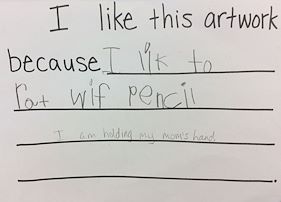 I like this artwork
because I lik to
rat wif pencil
I am holding my mom's hand
.